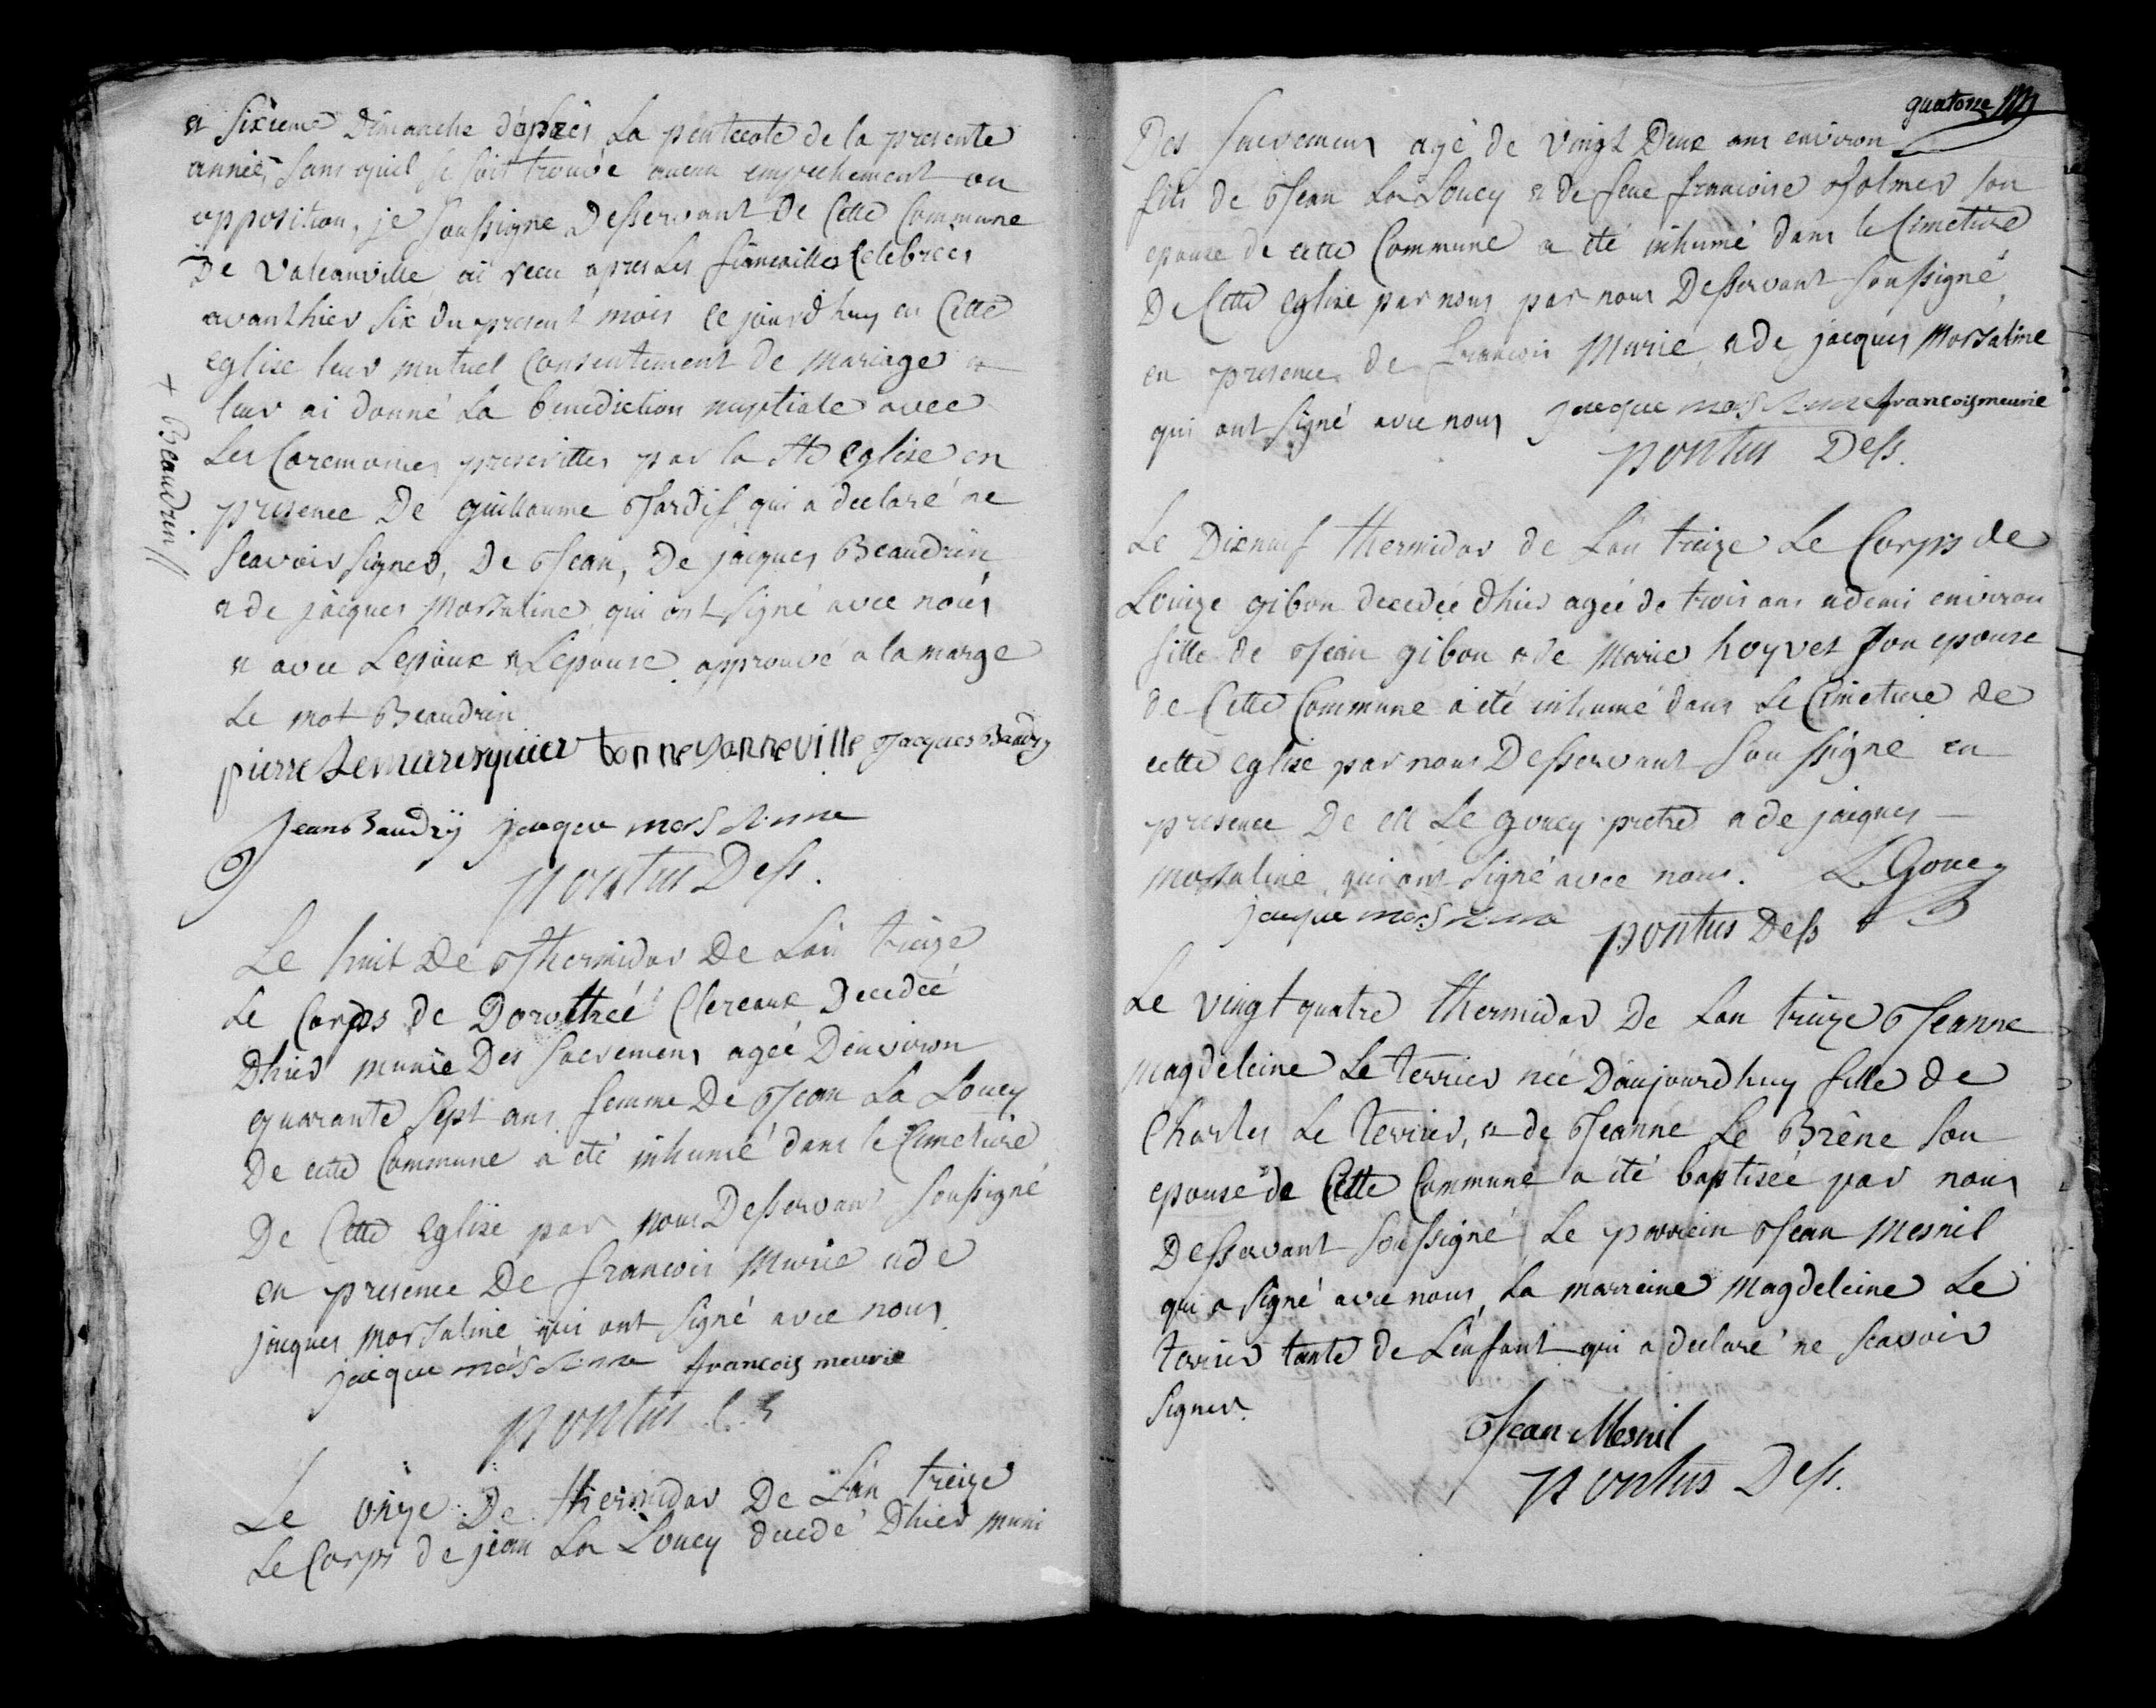 & sixieme Dimanche d'apres La pentecote de la presente
année, sans quil se soit trouvé aucun empechement ou
opposition, je soussigné Desservant De Cette Commune
De Valcanville ai recu apres les fiancailles Celebrées
avanthier six du present mois ce jourdhuy en Cette
eglise leur mutuel Consentement de mariage &
leur ai donné La benediction nuptiale avec
Les Ceremonies prescrittes par la Ste Eglise en
presence De guillaume Tardif qui a declaré ne
scavoir signer, De Jean, De jacques Beaudrin
& de jacques Morsaline qui ont signé avec nous
& avec Lepoux & Lepouse. approuvé a la marge
Le mot Beaudrin
+ Beaudrin //
pierre Lemaresquier bonne Vanneville Jacques Baudry
Jean Baudry jacque
pontus Dess.
Le huit De Thermidor De Lan treize
Le Corps de Dorotheé Clereaux Decedeé
Dhier munie Des sacremens ageé Denviron
quarante sept ans femme De Jean La Loucy
De cette Commune a été inhumé dans le Cimetiere
De Cette Eglise par nous Desservant soussigné
en presence De francois Murie & de
jacques Morsaline qui ont signé avec nous
jacque francois meurie
pontus
Le onze De thermidor De Lan treize
Le Corps de jean La Loucy decedé Dhier muni
quatorze
Des sacremens agé de vingt Deux ans environ
fils de Jean La Loucy & de feue francoise son
epouse de cette Commune a été inhumé dans le Cimetiere
De Cette Eglise par nous par nous Desservant soussigné
en presence de francois Murie & de jacques Morsaline
qui ont signé avec nous jacque francois meurie
pontus Dess.
Le Dixneuf thermidor de Lan treize Le Corps de
Louize gibon decedée dhier ageé de trois ans & demi environ
fille de Jean gibon & de Marie hoyvet son epouse
de Cette Commune a été inhumé dans Le Cimetiere de
cette eglise par nous Desservant soussigné en
presence De Mr Le goucy pretre & de jacques
Morsaline qui ont signé avec nous. L Goucy
jacque pontus Dess
Le vingt quatre thermidor De Lan treize Jeanne
Magdeleine Le terrier née Daujourdhuy fille de
Charles Le terrier, & de Jeanne Le Brêne son
epouse de Cette Commune a été baptiseé par nous
Desservant soussigné Le parrein Jean Mesnil
qui a signé avec nous La marreine Magdeleine Le
terrier tante de Lenfant qui a declaré ne scavoir
signer.
Jean Mesnil
pontus Dess.